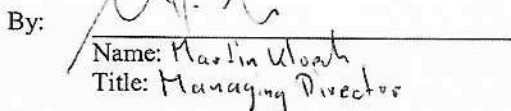 By:
Name: Martin
Title: Managing Director